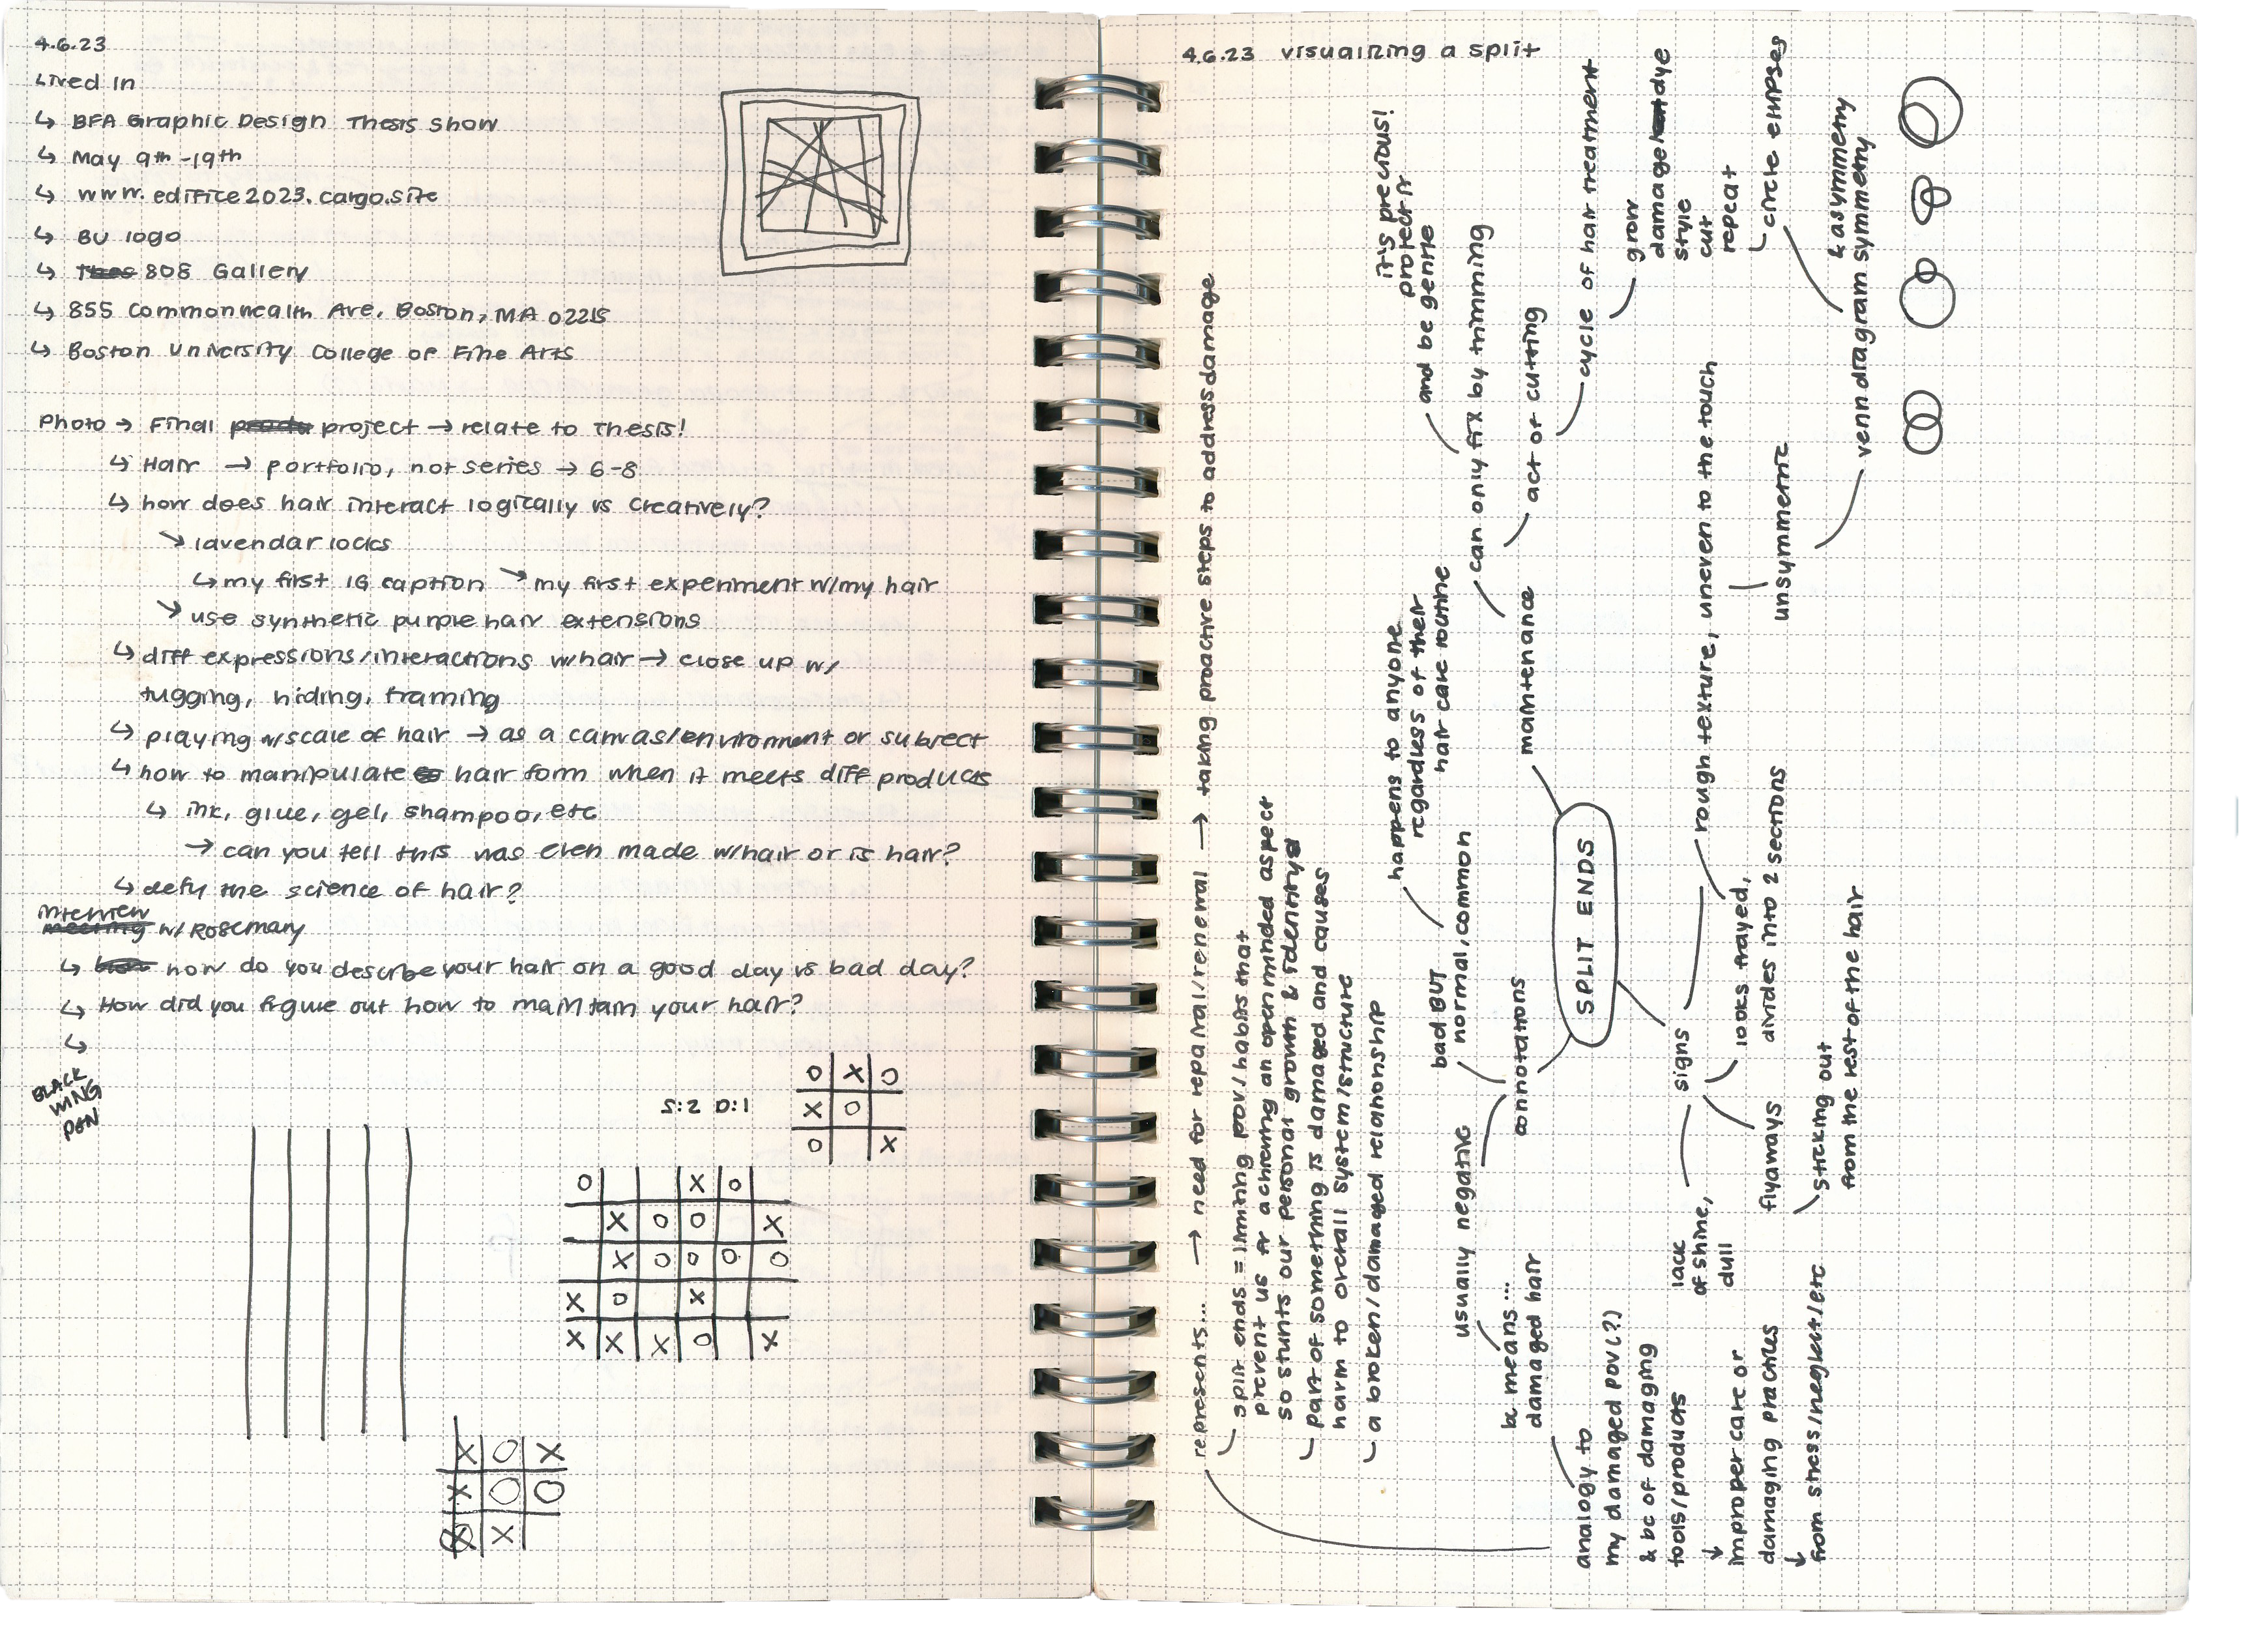 4.6.23
Lived In
↳ BFA Graphic Design Thesis Show
↳ May 9th-19th
↳ www.edifice2023.cargo.site
↳ BU logo
↳ 808 Gallery
↳ 855 Commonwealth Ave, Boston, MA 02215
↳ Boston University College of Fine Arts
Photo → Final project → relate to Thesis!
↳ Hair → portfolio, not series → 6-8
↳ how does hair interact logically vs creatively?
↘ lavendar locks
↳ my first IG caption ↘ my first experiment w/my hair
↘ use synthetic purple hair extensions
↳ diff expressions/interactions w/hair → close up w/
tugging, hiding, framing
↳ playing w/scale of hair → as a canvas/environment or subject
↳ how to manipulate hair form when it meets diff products
↳ ink, glue, gel, shampoo, etc
→ can you tell this was even made w/hair or is hair?
↳ defy the science of hair?
interview
w/ Rosemary
↳ how do you describe your hair on a good day vs bad day?
↳ How did you figure out how to maintain your hair?
↳
BLACK
WING
PEN
S:2 D:1
O X O
X O
O X
O X O
X O O X
X O O O O
X O X
X X X O X
X O X
X O O
X X
4.6.23 visualizing a split
represents... → need for repair/renewal → taking proactive steps to address damage
split ends = limiting pov/habits that
prevent us fr achieving an open minded aspect
so stunts our personal growth & identity
part of something is damaged and causes
harm to overall system/structure
a broken/damaged relationship
SPLIT ENDS
maintenance
can only fix by trimming
and be gentle
it's precious!
protect it
act of cutting
cycle of hair treatment
grow
damage dye
style
cut
repeat
circle ellipses
connotations
bad BUT
normal, common
happens to anyone
regardless of their
hair care routine
usually negative
bc means...
damaged hair
analogy to
my damaged pov(?)
& bc of damaging
tools/products
↓
improper care or
damaging practices
↓
from stress/neglect/etc
signs
rough texture, uneven to the touch
unsymmetric
venn diagram symmetry
& asymmetry
looks frayed,
divides into 2 sections
flyaways
sticking out
from the rest of the hair
lack
of shine,
dull